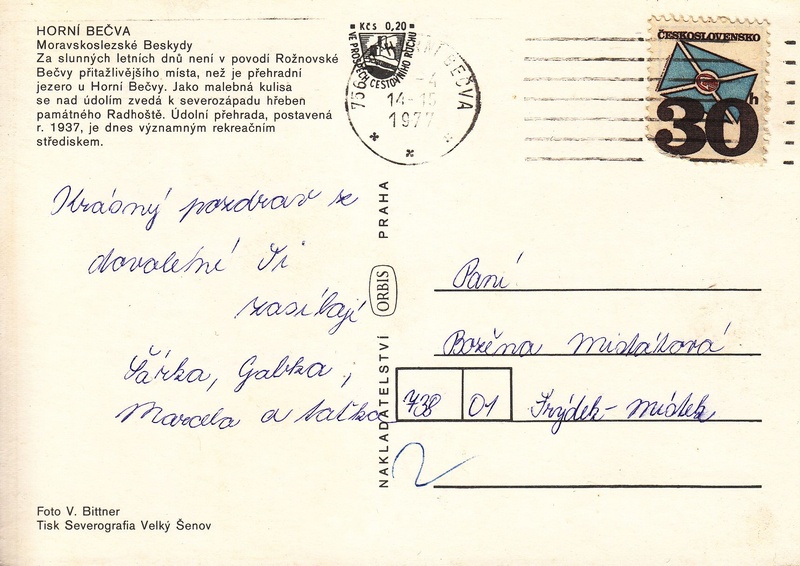 HORNÍ BEČVA
Moravskoslezské Beskydy
Za slunných letních dnů není v povodí Rožnovské
Bečvy přitažlivějšího místa, než je přehradní
jezero u Horní Bečvy. Jako malebná kulisa
se nad údolím zvedá k severozápadu hřeben
památného Radhoště. Údolní přehrada, postavená
r. 1937, je dnes významným rekreačním
střediskem.
Kčs 0,20
VE PROSPĚCH CESTOVNÍHO RUCHU
BEČVA
14-15
1977
ČESKOSLOVENSKO
30h
Krásný pozdrav ze
dovolené Ti
zasílají
Šárka, Gabka,
Marcela a taťka
NAKLADATELSTVÍ ORBIS PRAHA
Paní
Božena
738 01 Frýdek-Místek
Foto V. Bittner
Tisk Severografia Velký Šenov